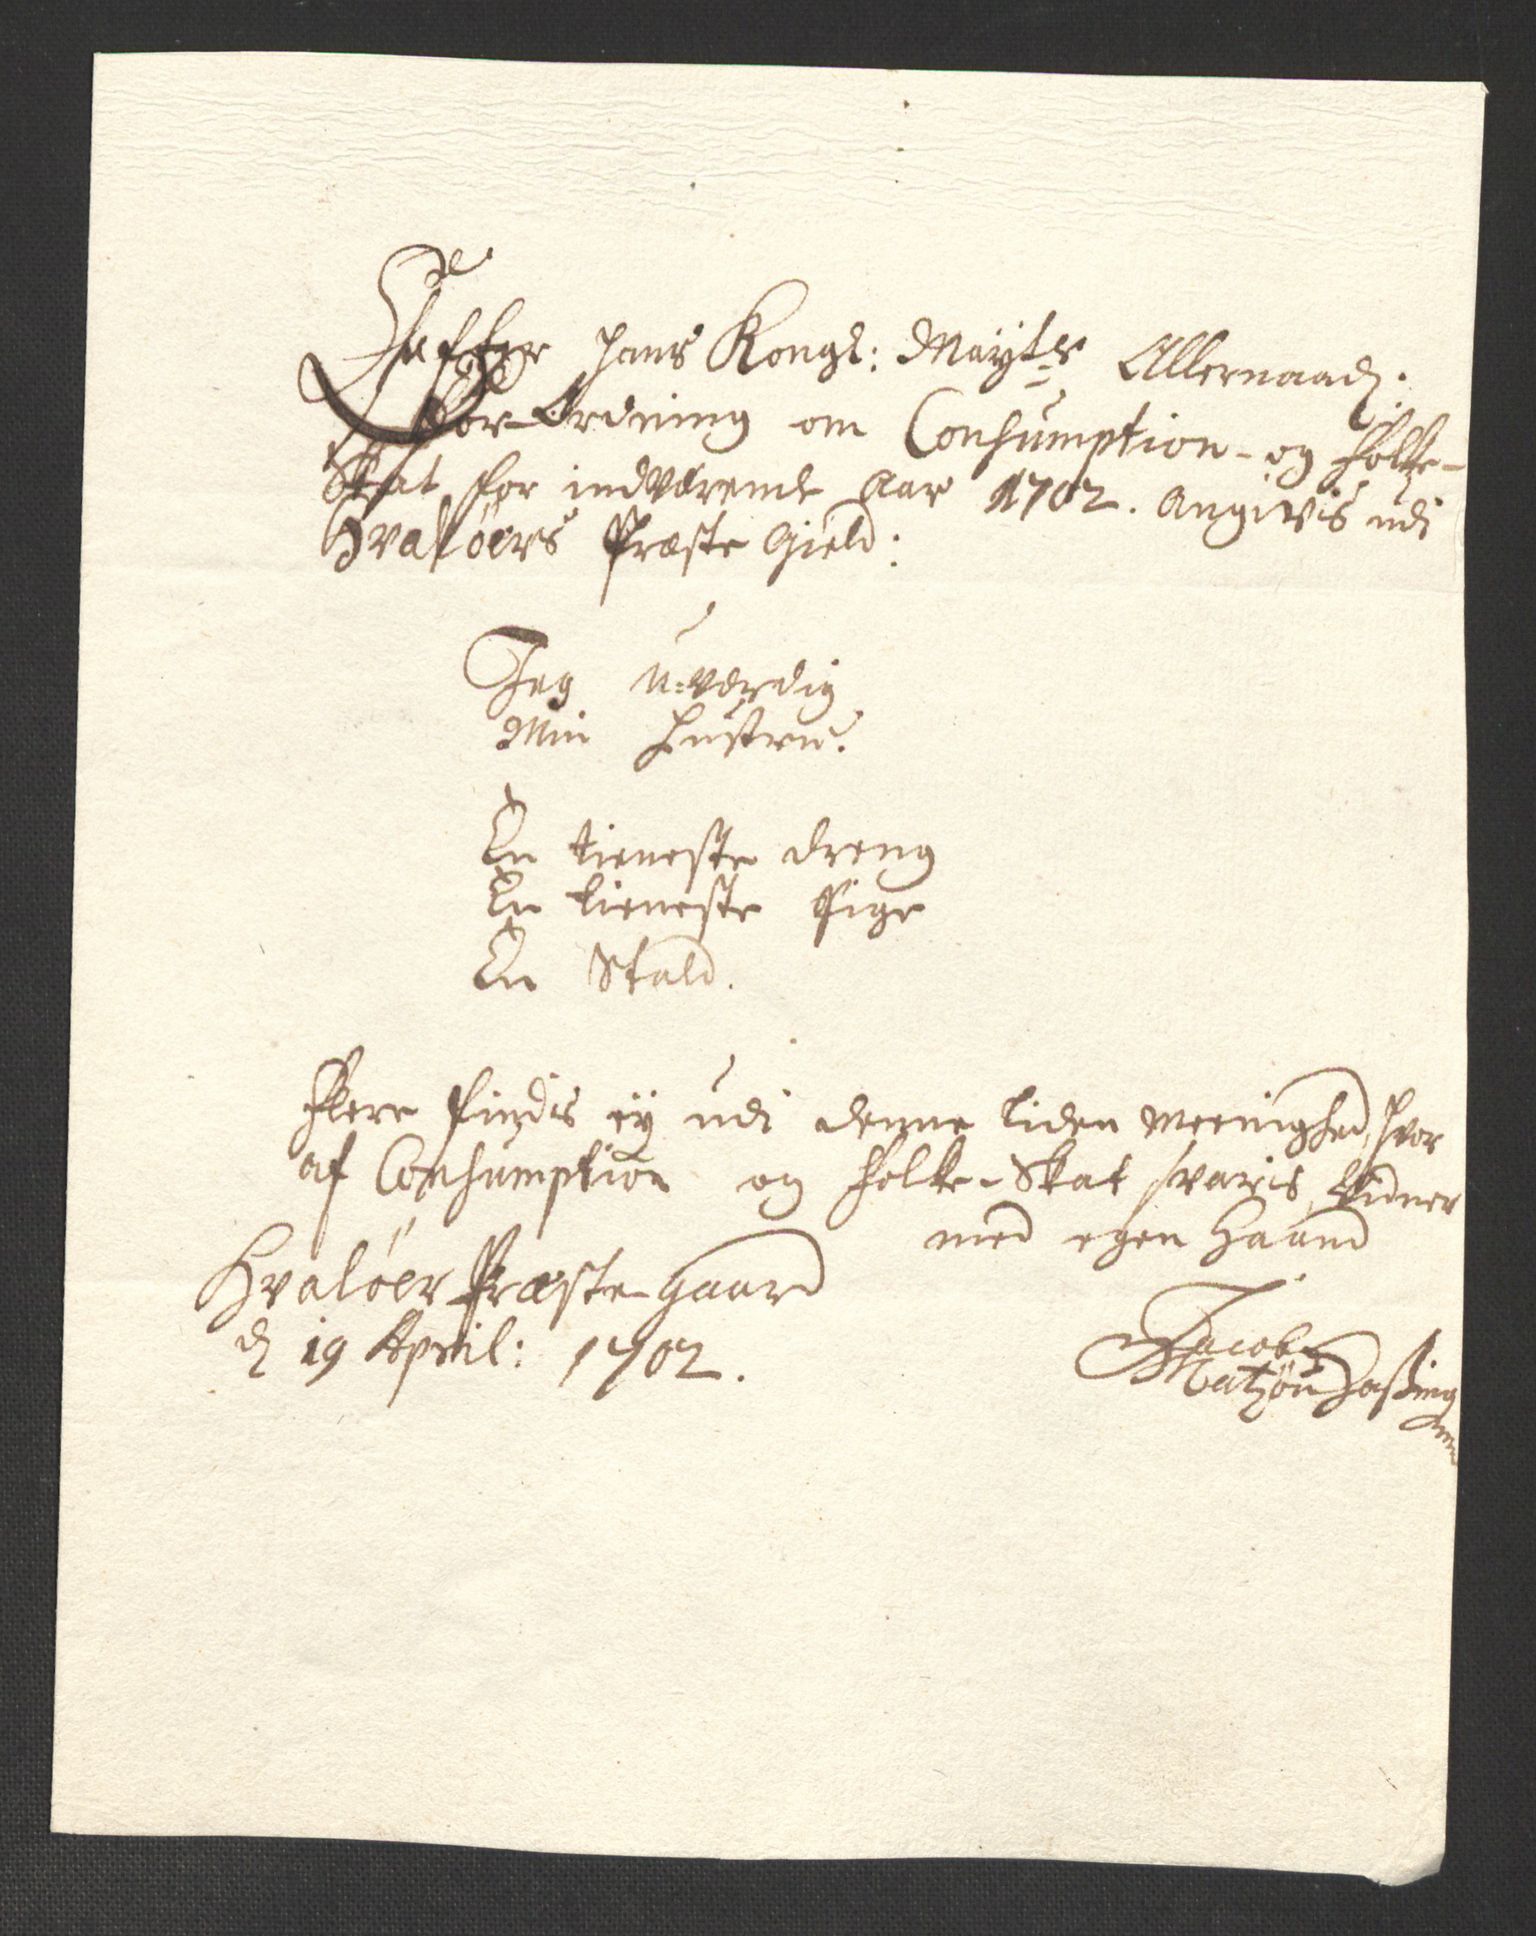 Effter Hans Kongl: Mayts Allernaad.
For-Ordning om Consumption- og Folke-
Skat for indværende Aar 1702. Angivis udi
Hvalöers Præste Gield:
Jeg U-værdig
Min Hustru.
En tieneste dreng
En tieneste Pige
En Stald.
Flere findis ey udi denne liden Meenighed, hvor
af Consumption og Folke-Skat svaris, Vidner
med egen Haand
Hvalöer Præste-Gaard
d 19 April: 1702.
Jacob
Matzön Hassing